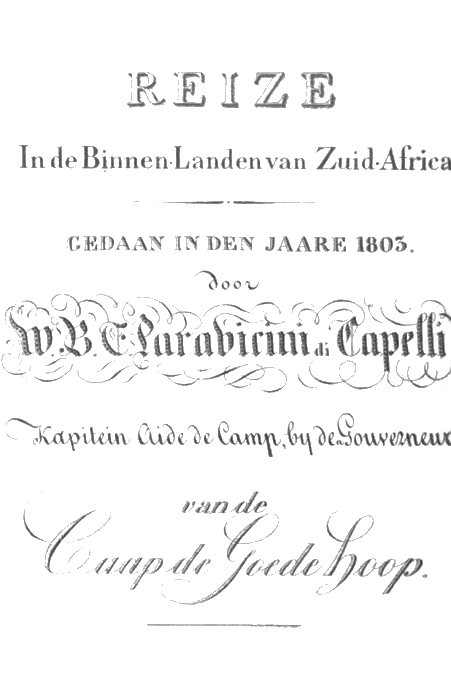 REIZE
In de Binnen-Landen van Zuid-Africa
GEDAAN IN DEN JAARE 1803.
door
W.B.E. Paravicini di Capelli
Kapitein Aide de Camp, by de Gouverneur
van de
Caap de Goede Hoop.